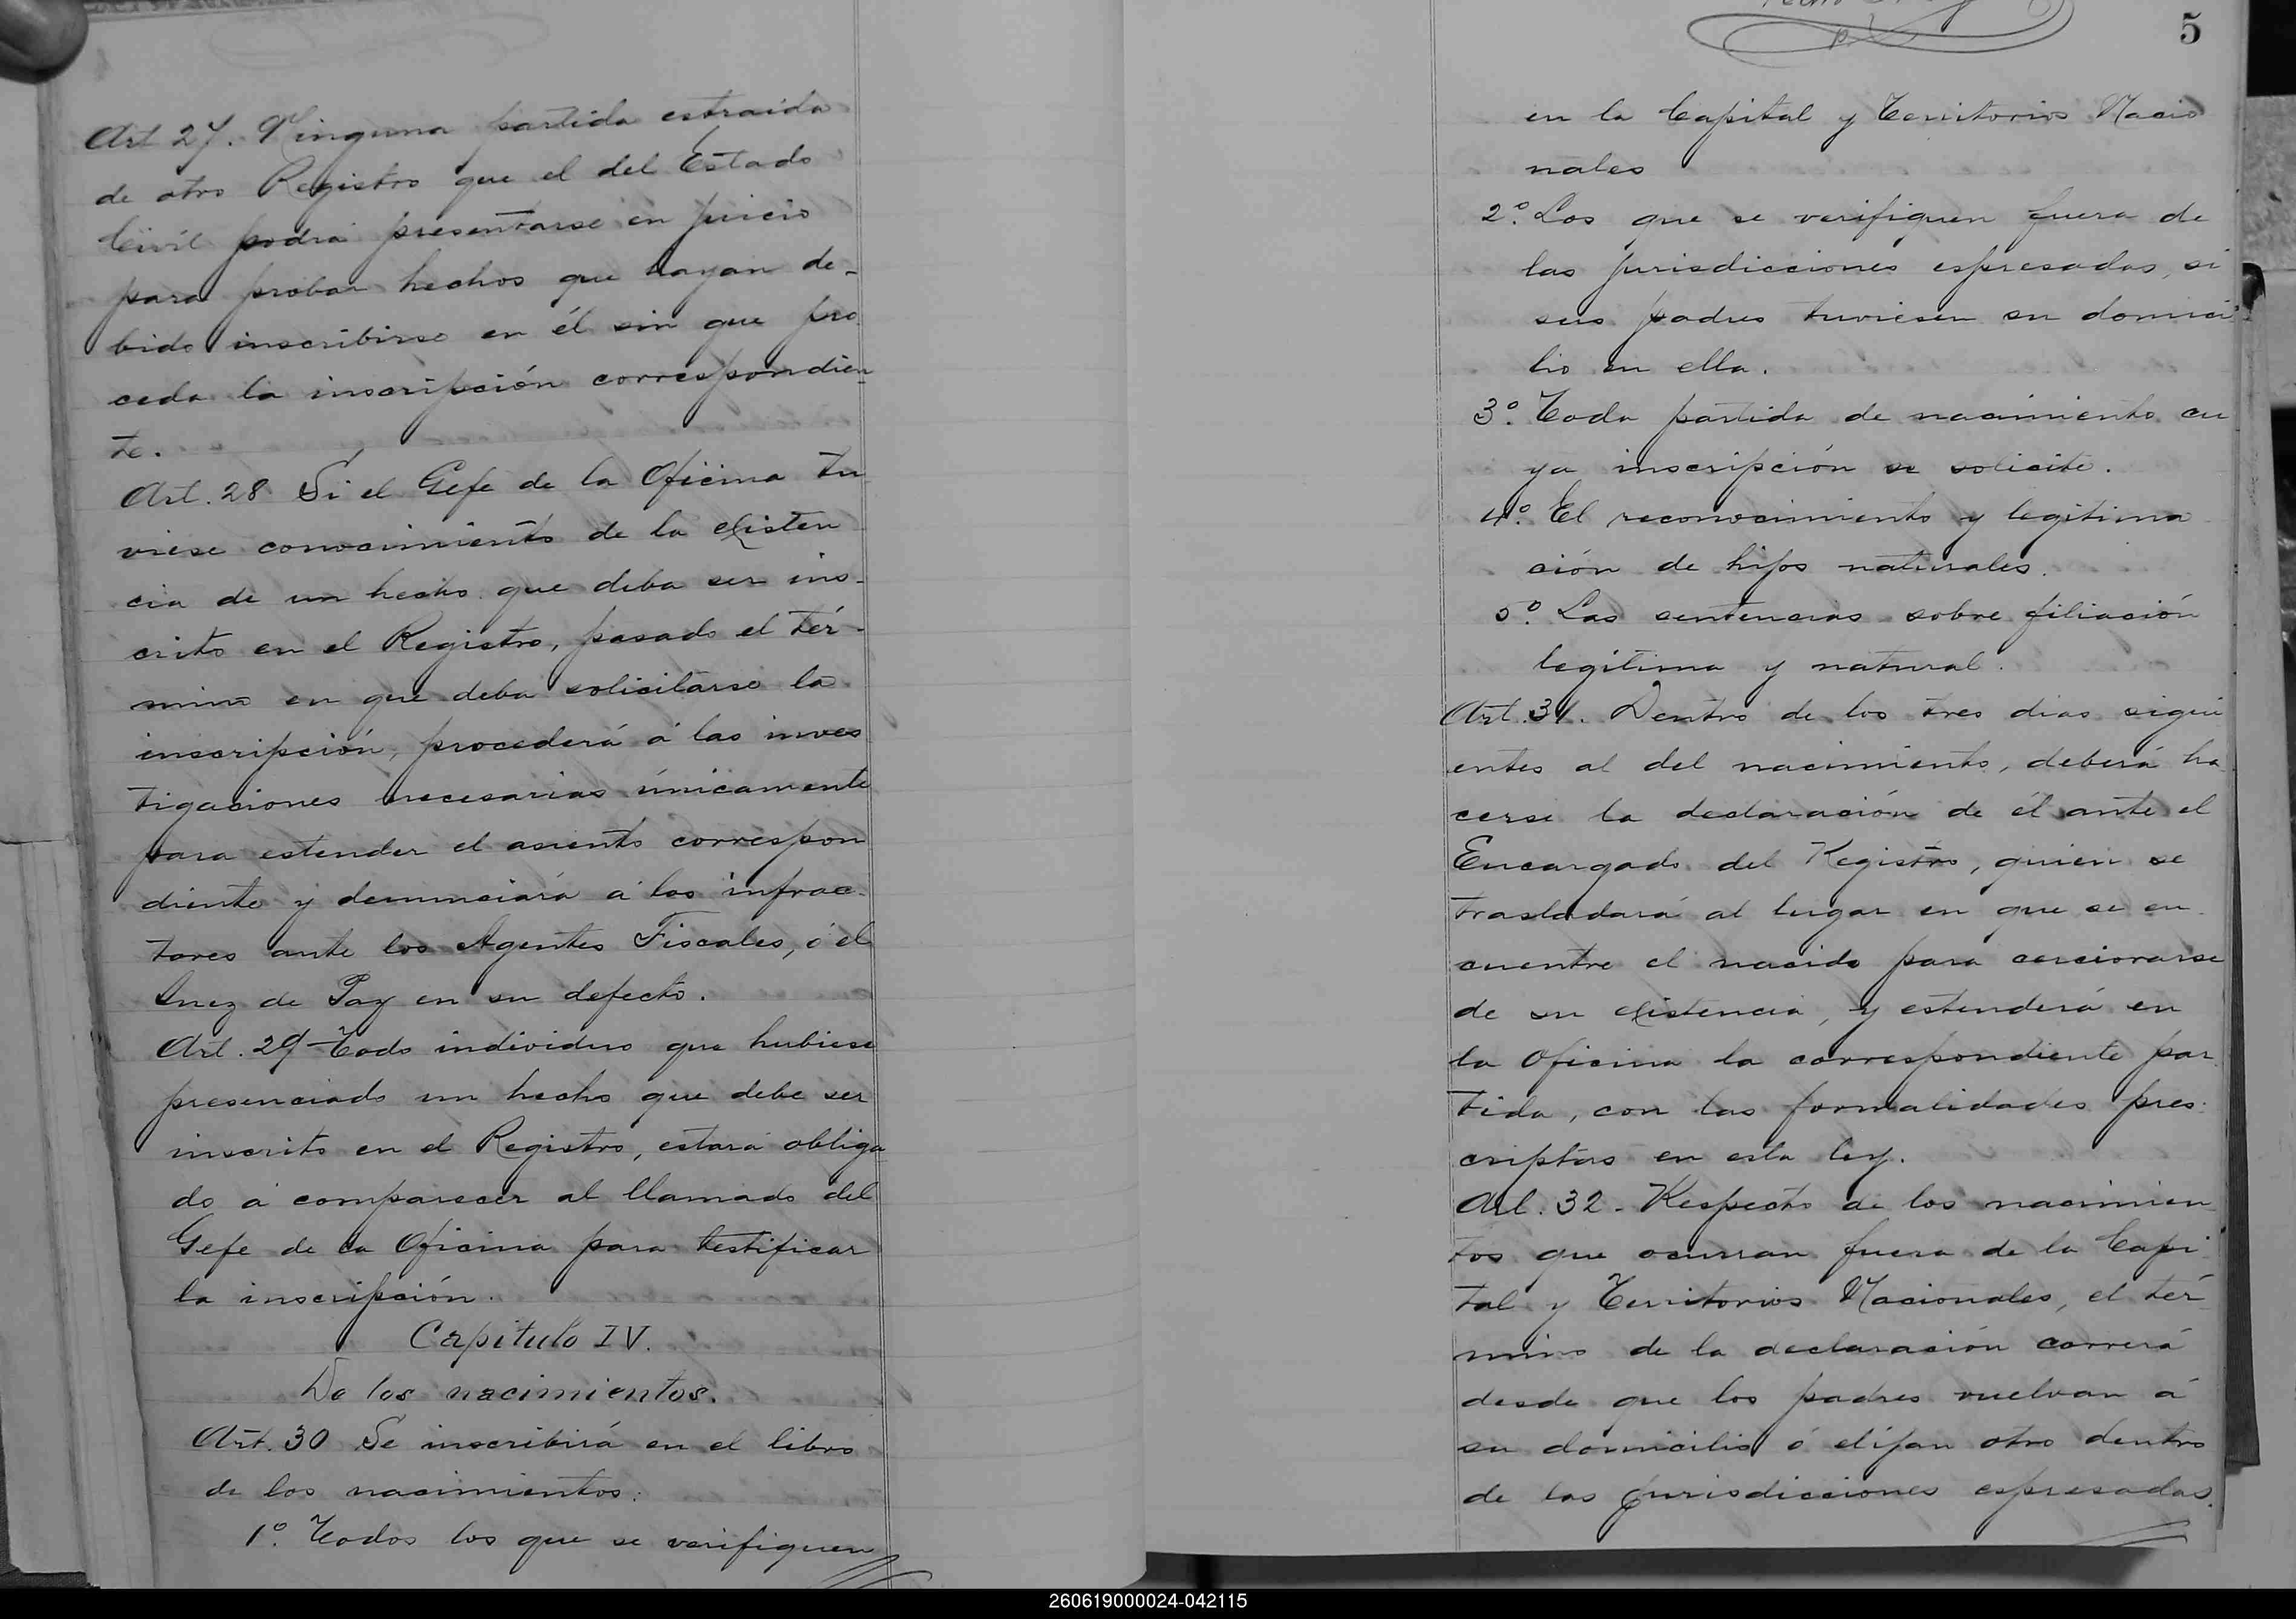 Art 27. Ninguna partida estraida
de otro Registro que el del Estado
Civil podrá presentarse en juicio
para probar hechos que hayan de-
bido inscribirse en él sin que pro
ceda la inscripción correspondien
te.
Art. 28 Si el Gefe de la Oficina tu
viese conocimiento de la existen
cia de un hecho que deba ser ins-
crito en el Registro, pasado el tér-
mino en que deba solicitarse la
inscripción, procederá á las inves
tigaciones necesarias únicamente
para estender el asiento correspon
diente y denunciará á los infrac-
tores ante los Agentes Fiscales, ó el
Juez de Paz en su defecto.
Art. 29 Todo individuo que hubiese
presenciado un hecho que debe ser
inscrito en el Registro, estará obliga
do á comparecer al llamado del
Gefe de la Oficina para testificar
la inscripción.
Capitulo IV.
De los nacimientos.
Art. 30 Se inscribirá en el libro
de los nacimientos:
1º. Todos los que se verifiquen
5
en la Capital y Territorios Nacio
nales
2º. Los que se verifiquen fuera de
las jurisdicciones espresadas, si
sus padres tuviesen su domici
lio en ella.
3º. Toda partida de nacimiento cu
ya inscripción se solicite.
4º. El reconocimiento y legitima
ción de hijos naturales.
5º. Las sentencias sobre filiación
legítima y natural.
Art. 31. Dentro de los tres dias sigui
entes al del nacimiento, deberá ha
cerse la declaración de él ante el
Encargado del Registro, quien se
trasladará al lugar en que se en
cuentre el nacido para cerciorarse
de su existencia, y estenderá en
la Oficina la correspondiente par
tida, con las formalidades pres-
criptas en esta ley.
Art. 32. Respecto de los nacimien
tos que ocurran fuera de la Capi
tal y Territorios Nacionales, el tér
mino de la declaración correrá
desde que los padres vuelvan á
su domicilio ó elijan otro dentro
de las jurisdicciones espresadas.
260619000024-042115